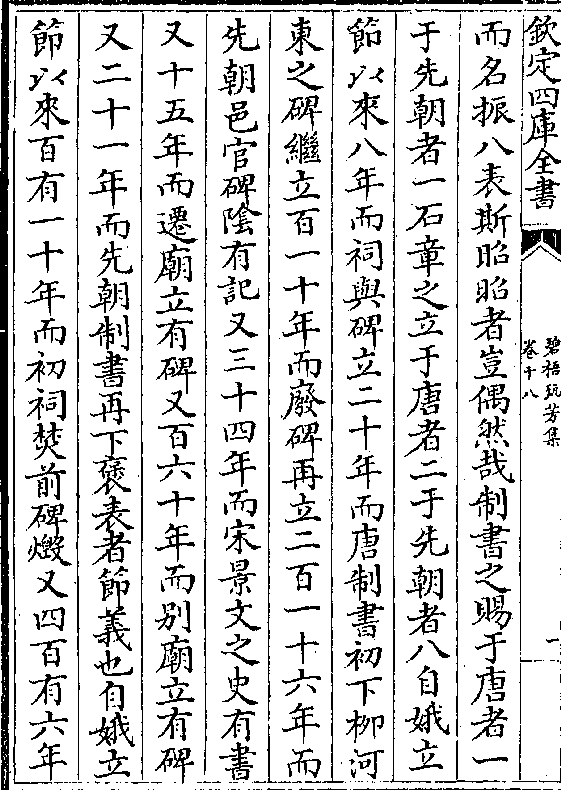 欽定四庫全書
碧梧玩芳集
卷十八
一
而名振八表斯昭昭者豈偶然哉制書之賜于唐者一
于先朝者一石章之立于唐者二于先朝者八自娥立
節以來八年而祠與碑立二十年而唐制書初下柳河
東之碑繼立百一十年而廢碑再立二百一十六年而
先朝邑官碑陰有記又三十四年而宋景文之史有書
又十五年而遷廟立有碑又百六十年而别廟立有碑
又二十一年而先朝制書再下褒表者節義也自娥立
節以來百有一十年而初祠焚前碑燬又四百有六年